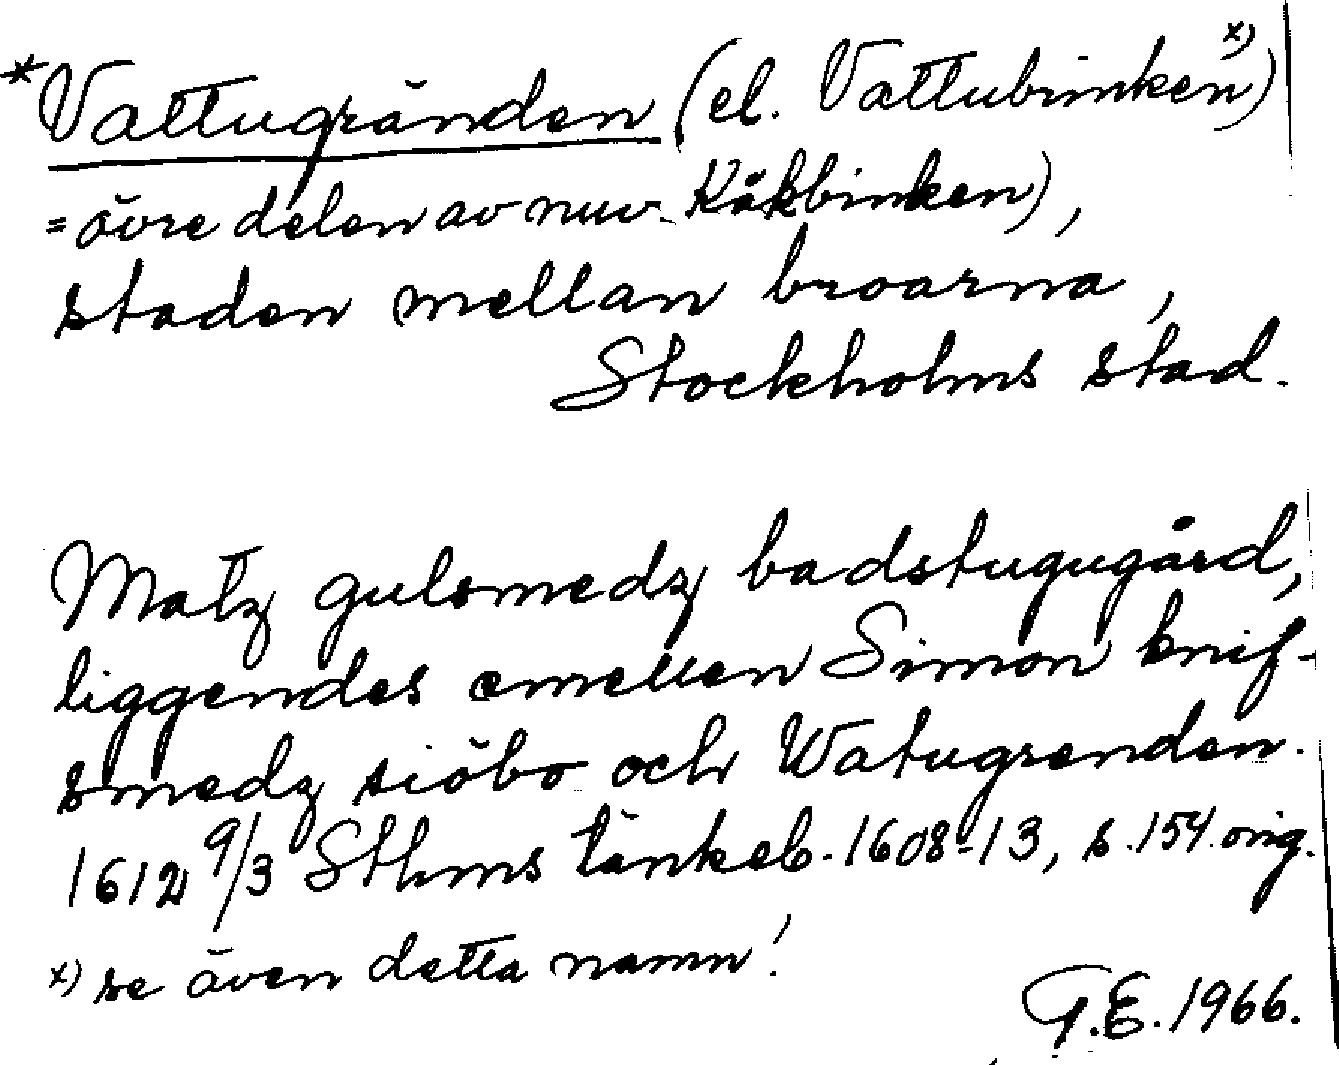 *Vattugränden (el. Vattubrinken x))
= övre delen av nuv. Kåkbrinken),
staden mellan broarna,
Stockholms stad.
Matz gulsmedz badstugugård,
liggendes emellen Simon knif-
smedz siöbo och Watugrenden.
1612 9/3 Sthms tänkeb. 1608-13, s. 154. orig.
x) se även detta namn!
G.E. 1966.